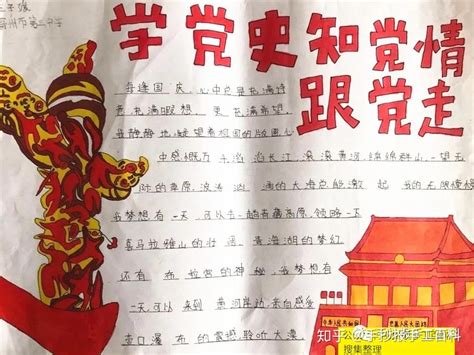 王子媛
学党史知党情
跟党走
每逢国庆,心中总是充满诗
意充满暇想,更充满希望,
我静静地凝望着祖国的版图心
中感概万千滔滔长江,滚滚黄河,绵绵群山,一望无
际的草原,波涛汹涌的大海总能激起我的无限憧憬
我梦想有一天,可以去一趟青藏高原,领略一下
喜马拉雅山的壮阔青海湖的梦幻
还有布拉宫的神秘,我梦想有
一天,可以来到黄河岸边,亲自感受
壶口瀑布的震撼聆听大漠,
知乎 @手抄报手工百科
搜集整理